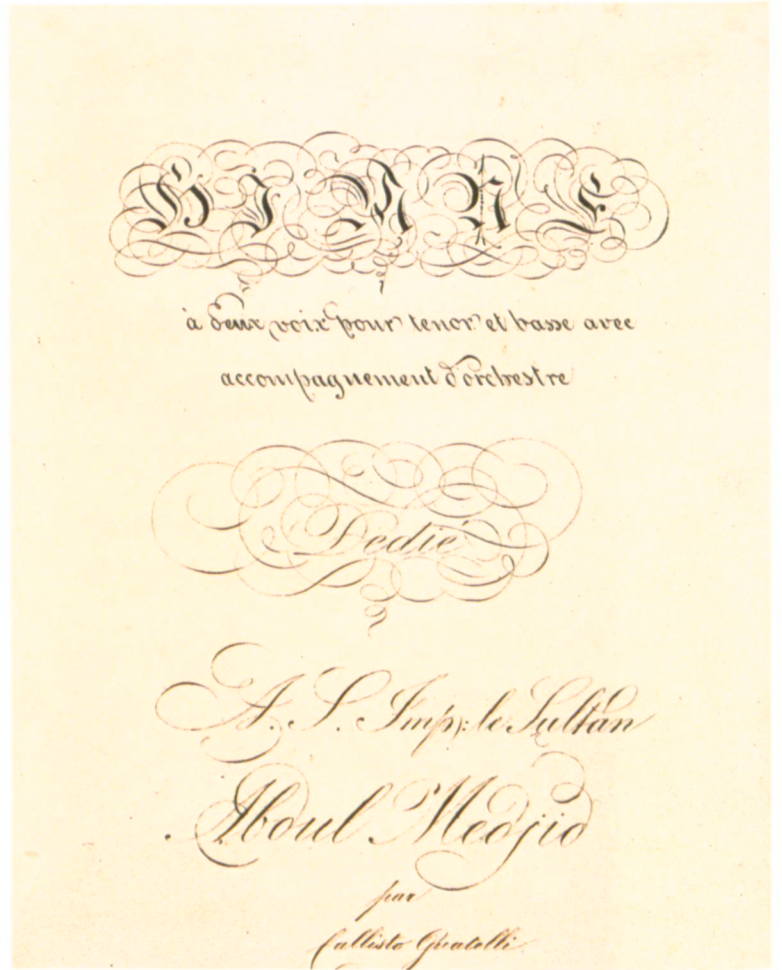 HIMNE
à deux voix pour tenor et basse avec
accompagnement d'orchestre
Dedié
A. S. Imp: le Sultan
Abdul Medjid
par
Callisto Guatelli